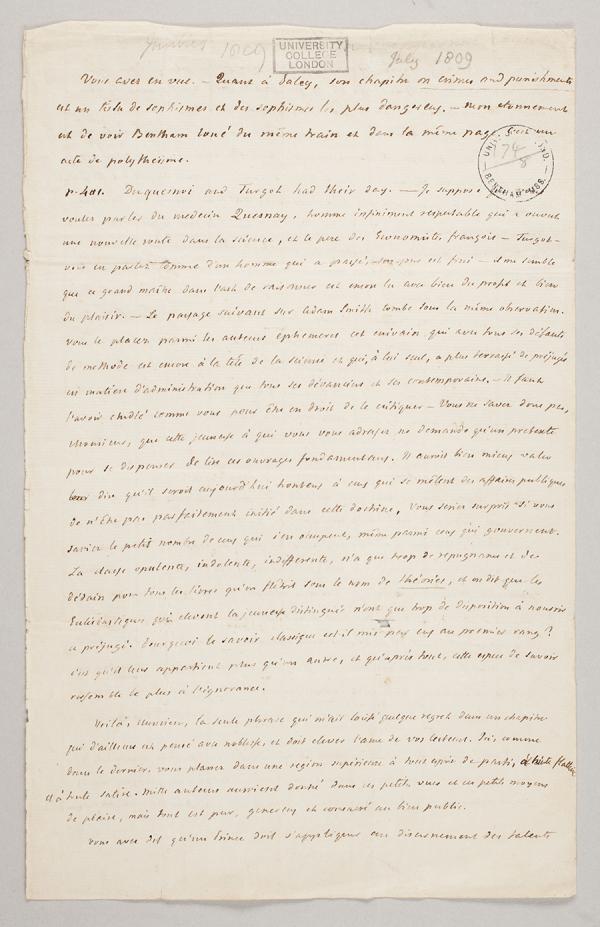 UNIVERSITY
COLLEGE
LONDON
July 1809
Vous avez en vue. – Quant à Paley, son chapitre on crimes and punishments
est un tissu de sophismes et des sophismes les plus dangereux. – mon etonnement
est de voir Bentham loué du même train et dans la même page. C'est un
acte de polytheïsme.
p. 401. Duquesnoi and Turgot had their day. – Je suppose
vouler parler du medecin Quesnay, homme infiniment respectable qui a ouvert
une nouvelle route dans la science, et le pere des Economistes françois – Turgot –
vous en parlez comme d'un homme qui a passé, est fini – il me semble
que ce grand maitre dans l'art de raisonner est encore lu avec bien du profit et bien
du plaisir. – Le passage suivant sur Adam Smith tombe sous la même observation.
vous le placez parmi les auteurs éphémeres cet ecrivain qui avec tous ses défauts
de methode est encore à la tête de la science et qui, à lui seul, a plus terrassé de préjugés
en matiere d'administration que tous ses dévanciers et ses contemporains. – Il faut
l'avoir etudié comme vous pour être en droit de le critiquer – Vous ne savez donc pas,
Monsieur, que cette jeunesse à qui vous vous adressez ne demande qu'un pretexte
pour se dispenser de lire ces ouvrages fondamentaux. Il auroit bien mieux valu
dire qu'il seroit aujourd'hui honteux à ceux qui se mêlent des affaires publiques
de n'être pas parfaitement initié dans cette doctrine, Vous seriez surpris si vous
saviez le petit nombre de ceux qui s'en occupent, même parmi ceux qui gouvernent.
La classe opulente, indolente, indifferente, n'a que trop de repugnance et de
dédain pour tous les livres qu'on flétrit sous le nom de théories, et on dit que les
Ecclésiastiques qui elevent la jeunesse distinguée n'ont que trop de disposition à nourrir
ce préjugé. Pourquoi le savoir classique est-il mis par eux au premier rang?
c'est qu'il leur appartient plus qu'un autre, et qu'après tout, cette espece de savoir
ressemble le plus à l'ignorance.
Voilà, Monsieur, la seule phrase qui m'ait laissé quelque regret dans un chapitre
qui d'ailleurs est pensé avec noblesse, et doit elever l'ame de vos lecteurs. Ici comme
dans le dernier, vous planez dans une region supérieure à tout esprit de parti, à toute flatterie
et à toute satire. Mille auteurs auroient donné dans ces petites vues et ces petits moyens
de plaire, mais tout est pur, genereux et consacré au bien public.
Vous avez dit qu'un Prince doit s'appliquer au discernement des talents